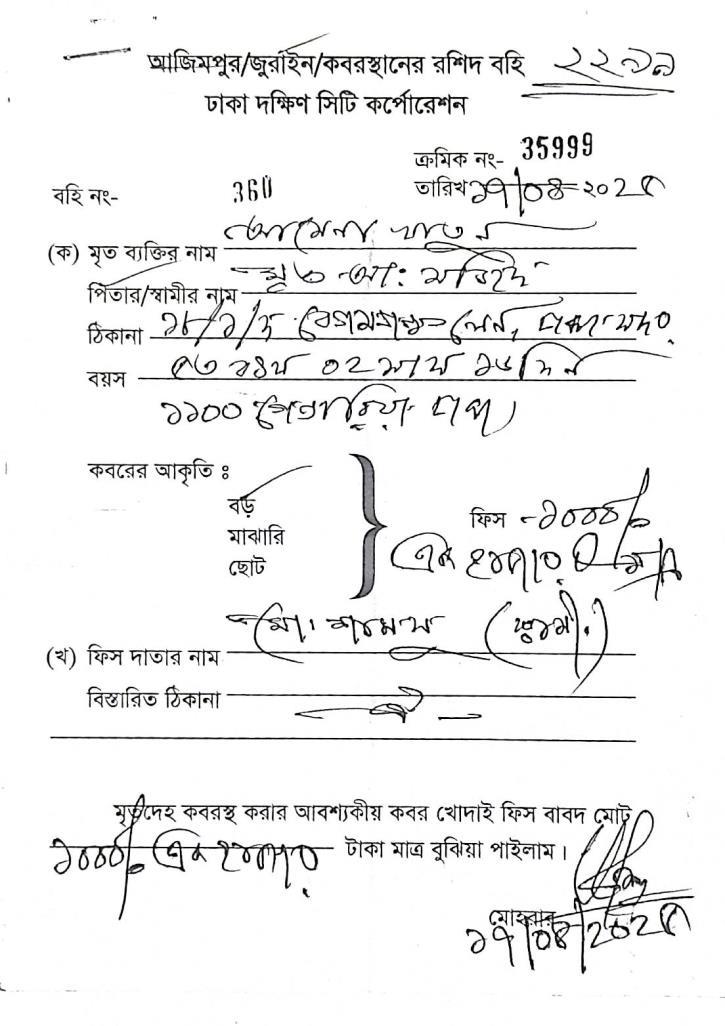 আজিমপুর/জুরাইন/কবরস্থানের রশিদ বহি ২২৭৯
ঢাকা দক্ষিণ সিটি কর্পোরেশন
ক্রমিক নং- 35999
বহি নং- 360
তারিখ ১৭/০৪-২০২৫
(ক) মৃত ব্যক্তির নাম আমেনা খাতুন
পিতার/স্বামীর নাম মৃত আ: মজিদ
ঠিকানা বেগমগঞ্জ লেন,
বয়স ৫৩ বৎসর ০২ মাস ১৬ দিন
১১০০ গেন্ডারিয়া ঢাকা
কবরের আকৃতি ঃ
বড়
মাঝারি
ছোট
ফিস -১০০০/-
এক হাজার টাকা মাত্র
(খ) ফিস দাতার নাম মো:
বিস্তারিত ঠিকানা ঐ
মৃতদেহ কবরস্থ করার আবশ্যকীয় কবর খোদাই ফিস বাবদ মোট
১০০০/- এক হাজার টাকা মাত্র বুঝিয়া পাইলাম।
মোহরার
১৭/০৪/২০২৫